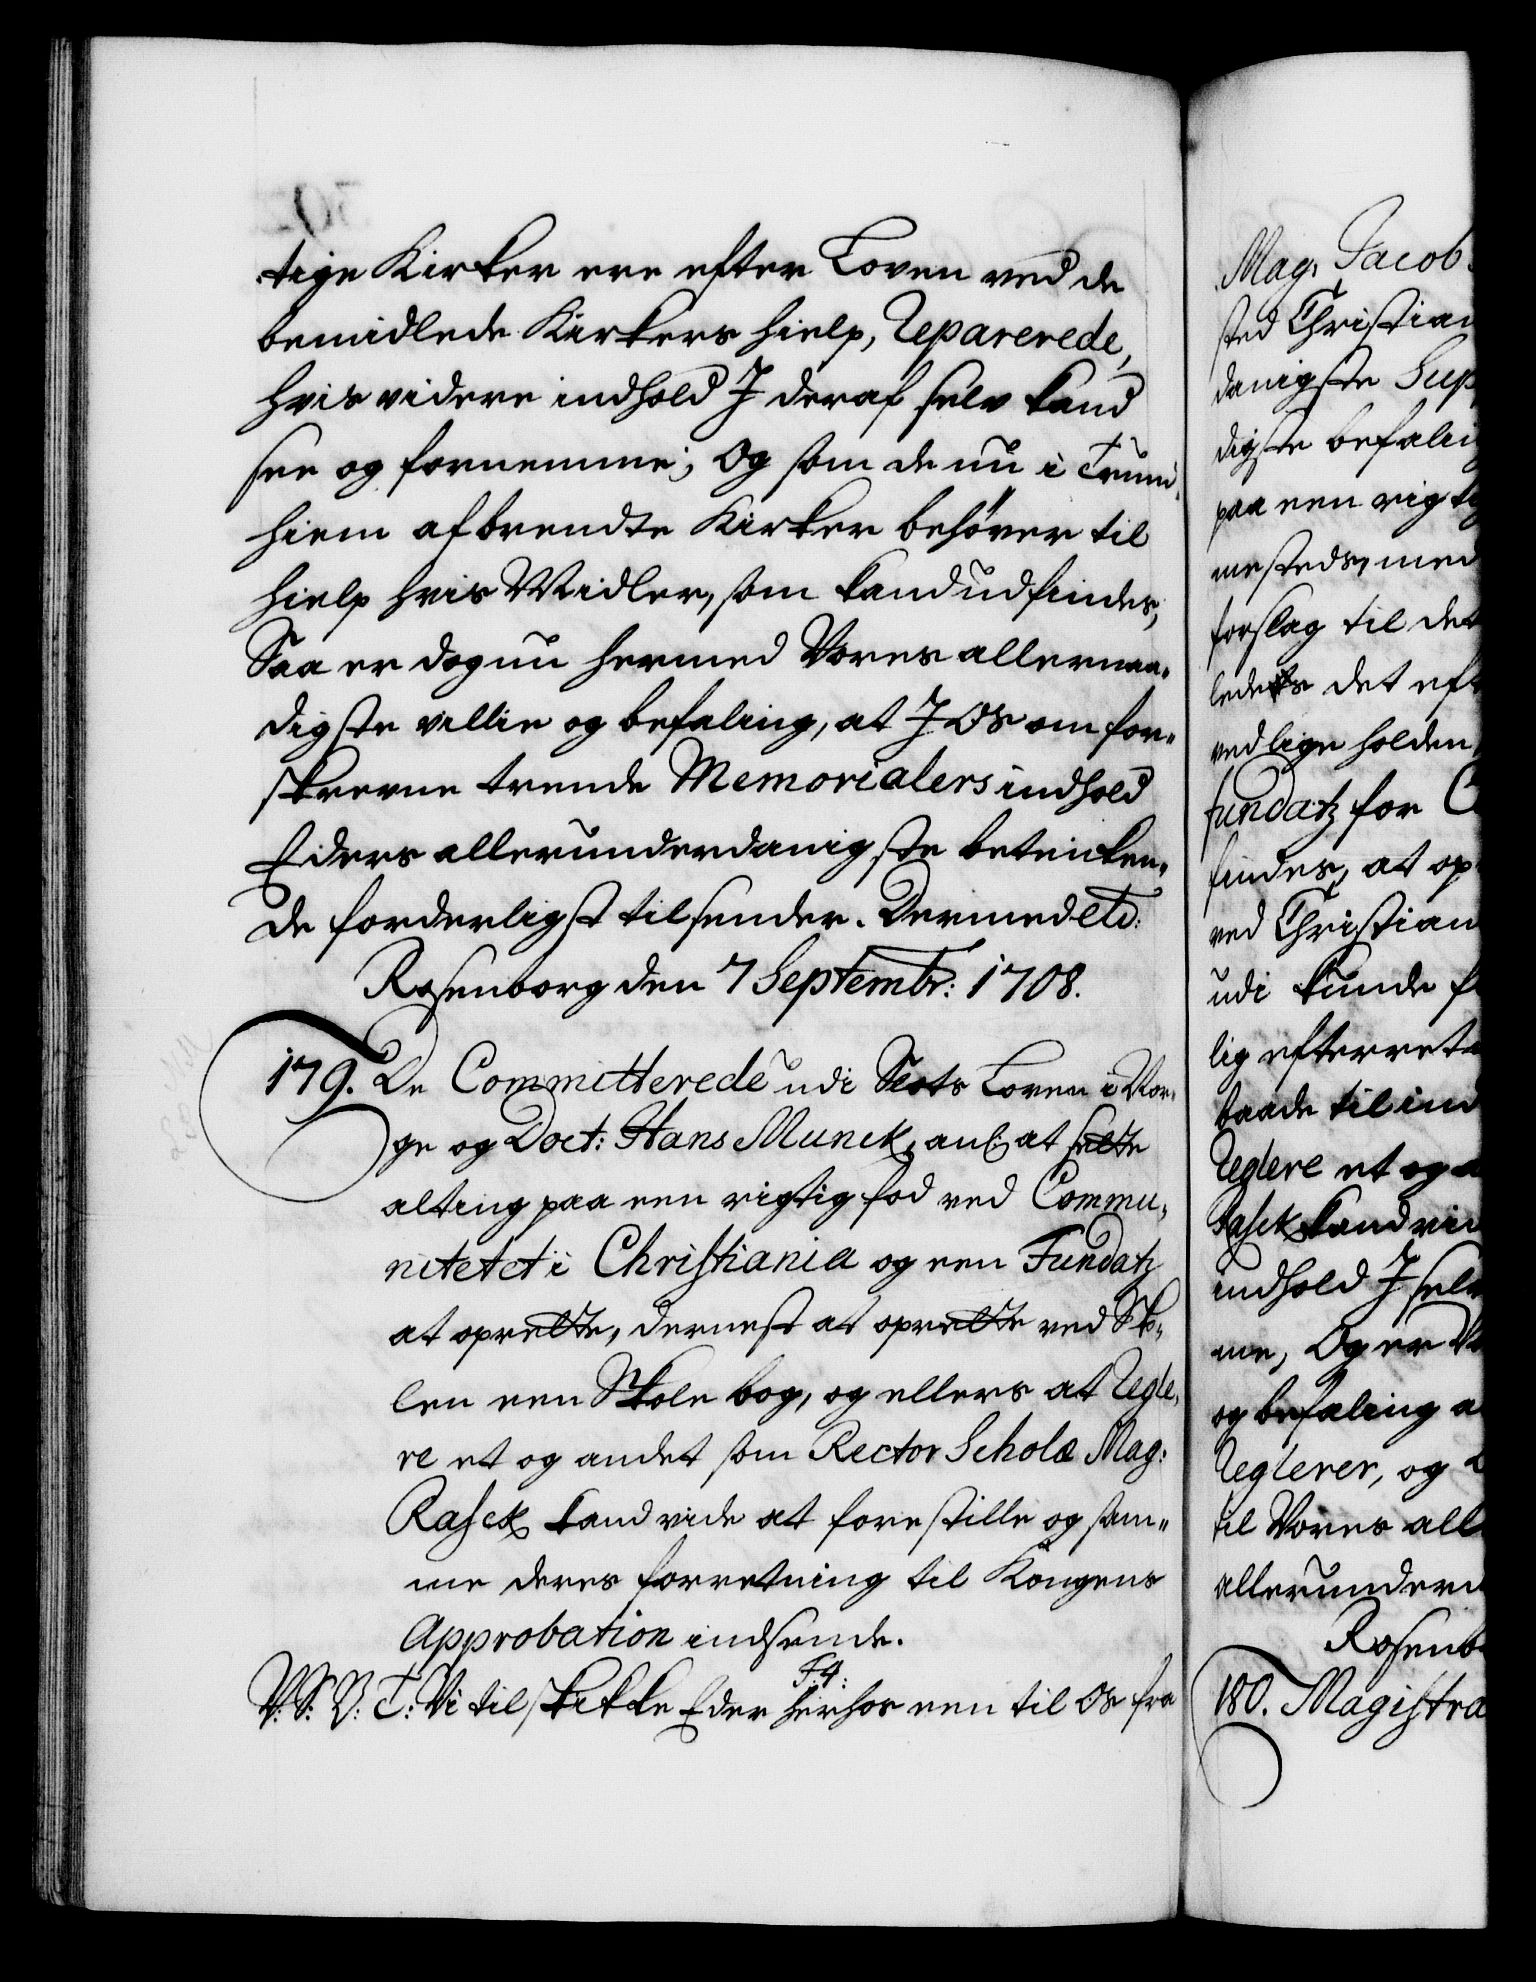 tige Kirker ere efter Loven ved de
bemidlede Kirkers hielp, Reparerede,
hvis videre indhold J deraf selv kand
see og fornemme; Og som de nu i Trund,
hiem afbrendte Kirker behøver til
hielp hvis Midler, som kand udfindes,
Saa er dog nu hermed Vores allernaa,,
digste villie og befaling, at J Os om for,,
skrevne trende Memorialers indhold
Eders allerunderdanigste betencken,,
de forderligst tilsender. Dermed etc:
Rosenborg den 7 Septembr: 1708.
179. De Committerede udi Slots Loven i Nor,
ge og Doct: Hans Munck, anl: at sette
alting paa een rigtig fod ved Commu,
nitetet i Christiania og een Fundatz
at oprette, dernest at oprette ved Sko,
len een Skole bog, og ellers at Regle,
re et og andet som Rector Scholæ Mag:
Rasck kand vide at forestille og sam,,
me deres forretning til Kongens
Approbation indsende.
F: 4:
V: S: V: T: Vi tilskikke Eder herhos een til Os fra
Mag: Jacob
sted Christian
danigste Sup
digste befaling
paa een rigtig
mesteds, med
forslag til det
ledes det eft
ved lige holden
fundatz for
findes, at op
ved Christian
udi kunde
lig efterret
baade til ind
Reglere et og a
Rasck kand vid
indhold J selv
me, Og er V
og befaling a
Reglerer, og
til Vores all
allerunderd
Rosenb
180. Magistra